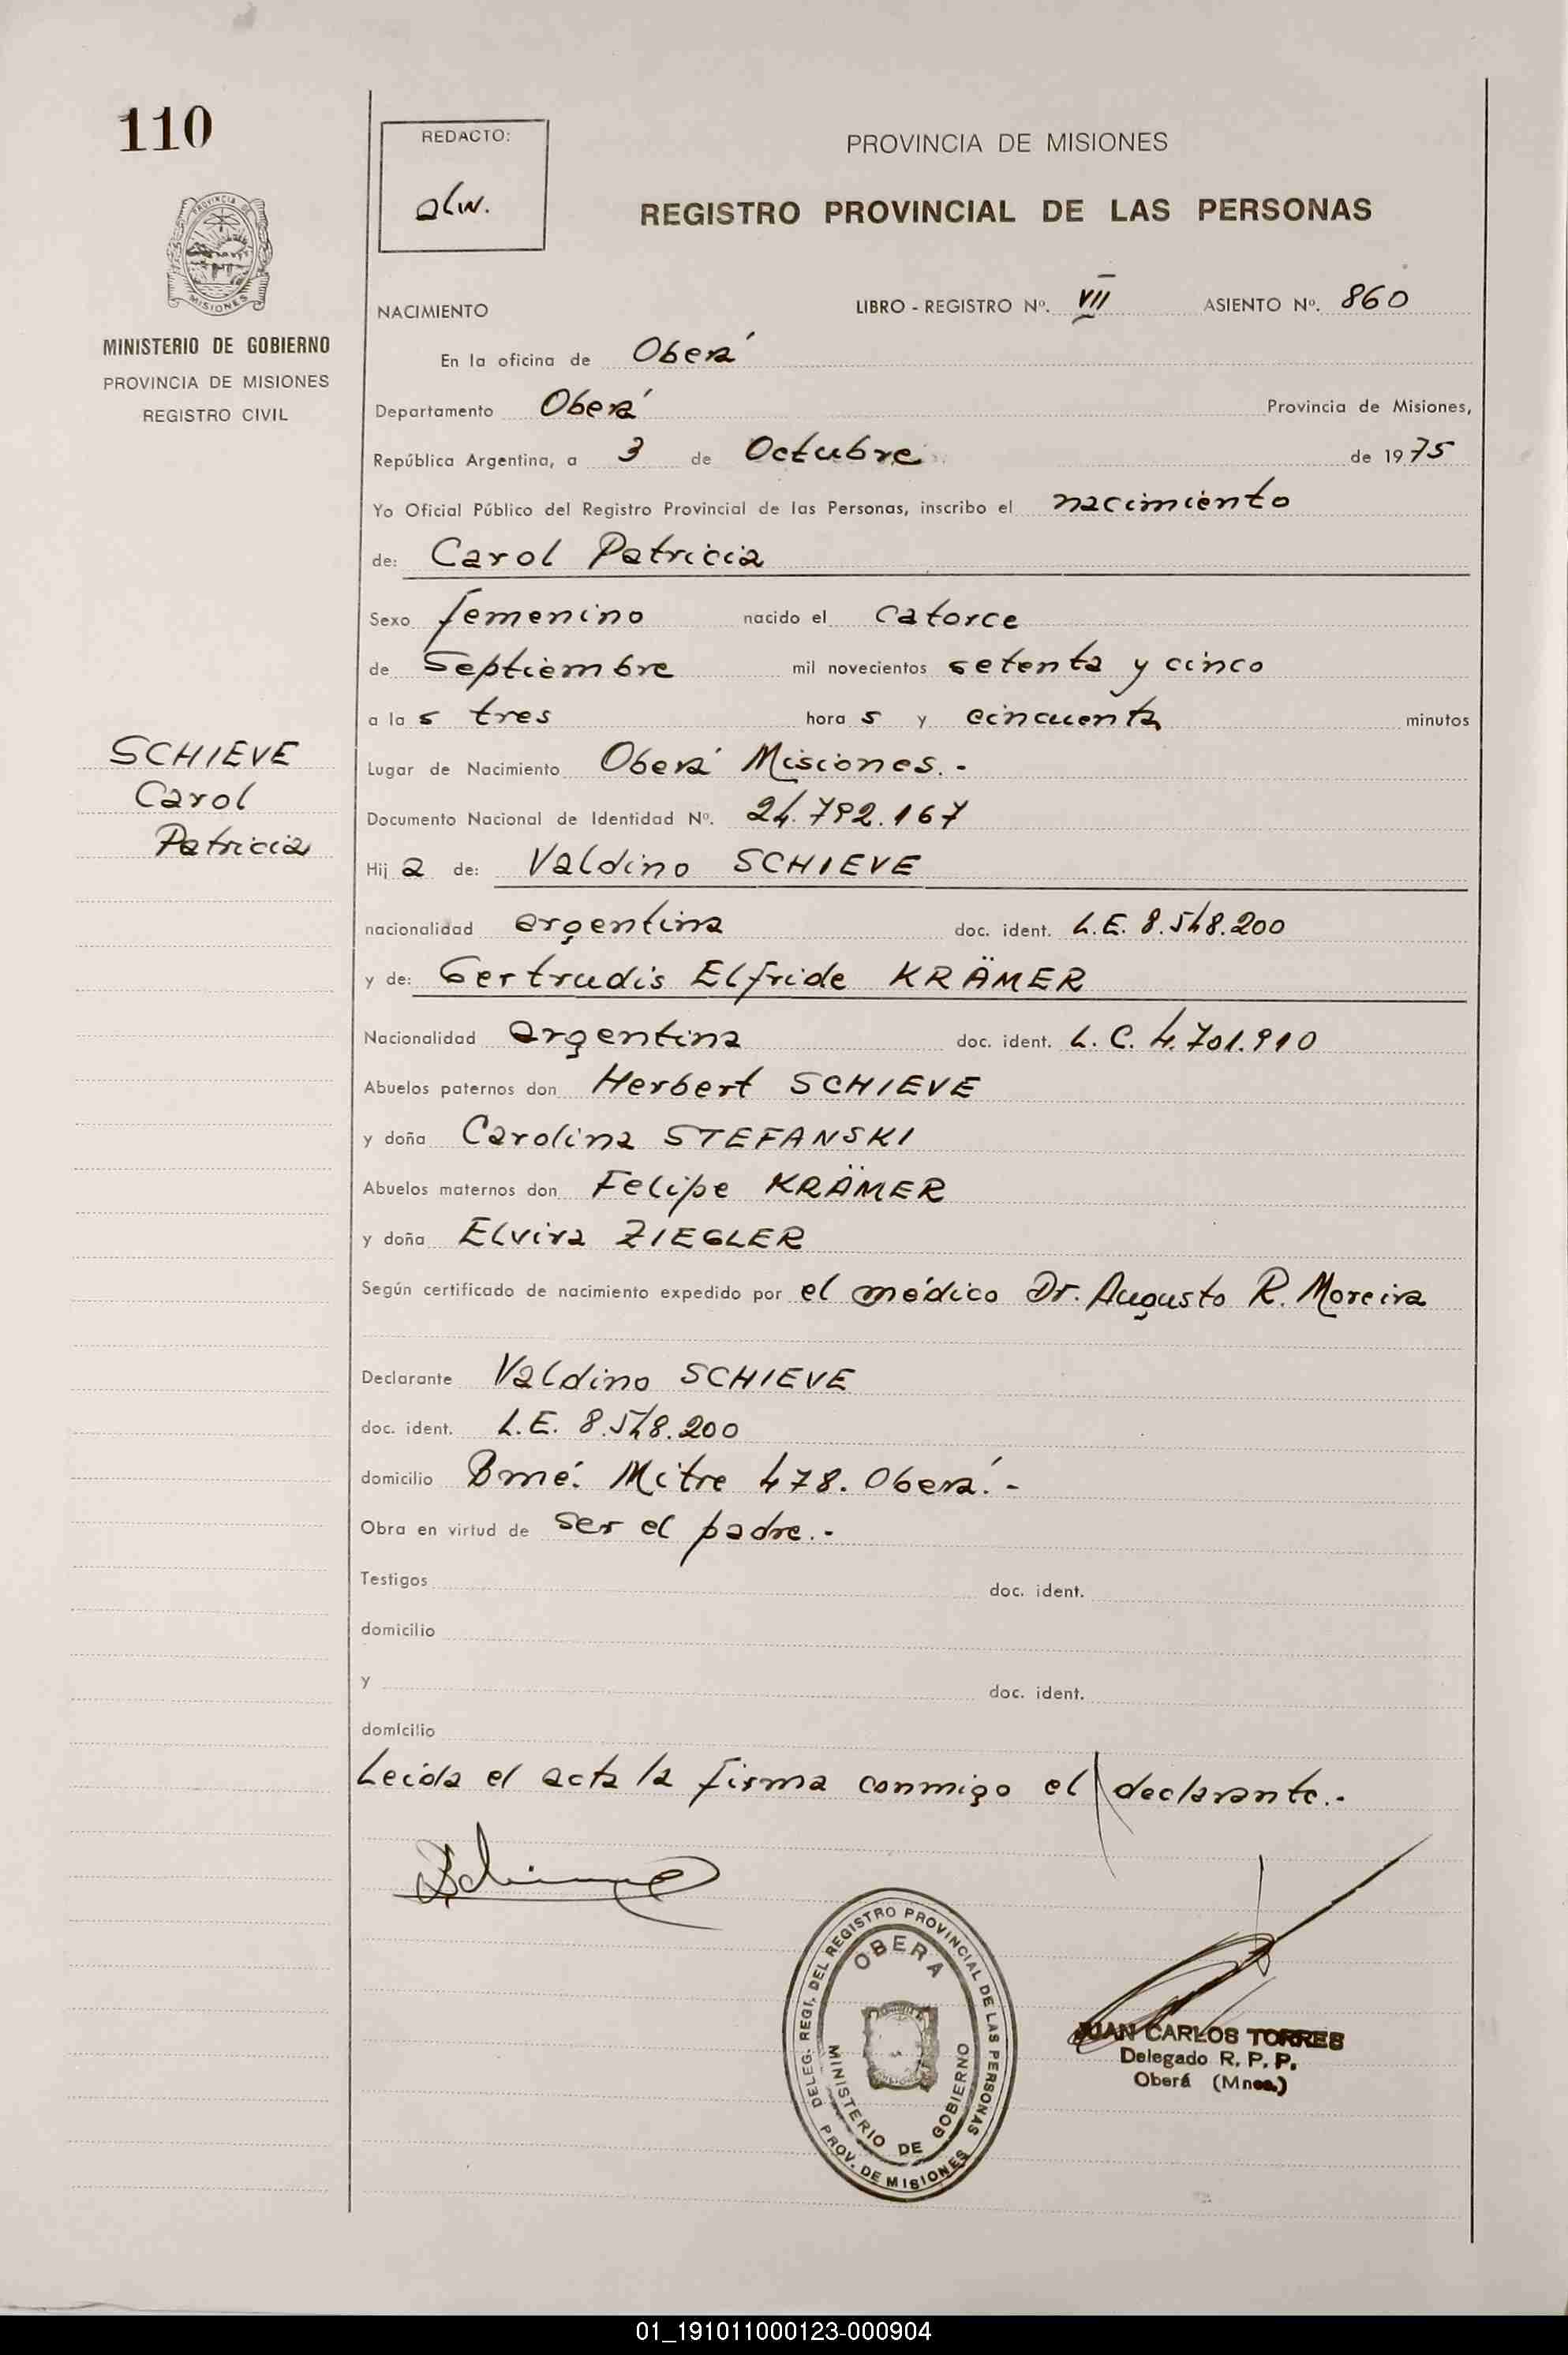 110
REDACTO:
PROVINCIA DE MISIONES
REGISTRO PROVINCIAL DE LAS PERSONAS
PROVINCIA DE
MISIONES
MINISTERIO DE GOBIERNO
PROVINCIA DE MISIONES
REGISTRO CIVIL
NACIMIENTO LIBRO - REGISTRO Nº. VII ASIENTO Nº. 860
En la oficina de Oberá
Departamento Oberá Provincia de Misiones,
República Argentina, a 3 de Octubre de 1975
Yo Oficial Público del Registro Provincial de las Personas, inscribo el nacimiento
de: Carol Patricia
Sexo femenino nacido el catorce
de Septiembre mil novecientos setenta y cinco
a las tres horas y cincuenta minutos
SCHIEVE
Carol
Patricia
Lugar de Nacimiento Oberá Misiones.-
Documento Nacional de Identidad Nº. 24.792.167
Hija de: Valdino SCHIEVE
nacionalidad argentina doc. ident. L.E. 8.548.200
y de: Gertrudis Elfride KRÄMER
Nacionalidad argentina doc. ident. L.C. 4.701.910
Abuelos paternos don Herbert SCHIEVE
y doña Carolina STEFANSKI
Abuelos maternos don Felipe KRÄMER
y doña Elvira ZIEGLER
Según certificado de nacimiento expedido por el médico Dr. Augusto R. Moreira
Declarante Valdino SCHIEVE
doc. ident. L.E. 8.548.200
domicilio Bmé. Mitre 478. Oberá.-
Obra en virtud de ser el padre.-
Testigos doc. ident.
domicilio
y doc. ident.
domicilio
Leída el acta la firma conmigo el declarante.-
DELEG. REGI. DEL REGISTRO PROVINCIAL DE LAS PERSONAS
OBERA
MINISTERIO DE GOBIERNO
PROV. DE MISIONES
JUAN CARLOS TORRES
Delegado R. P. P.
Oberá (Mnes.)
01_191011000123-000904